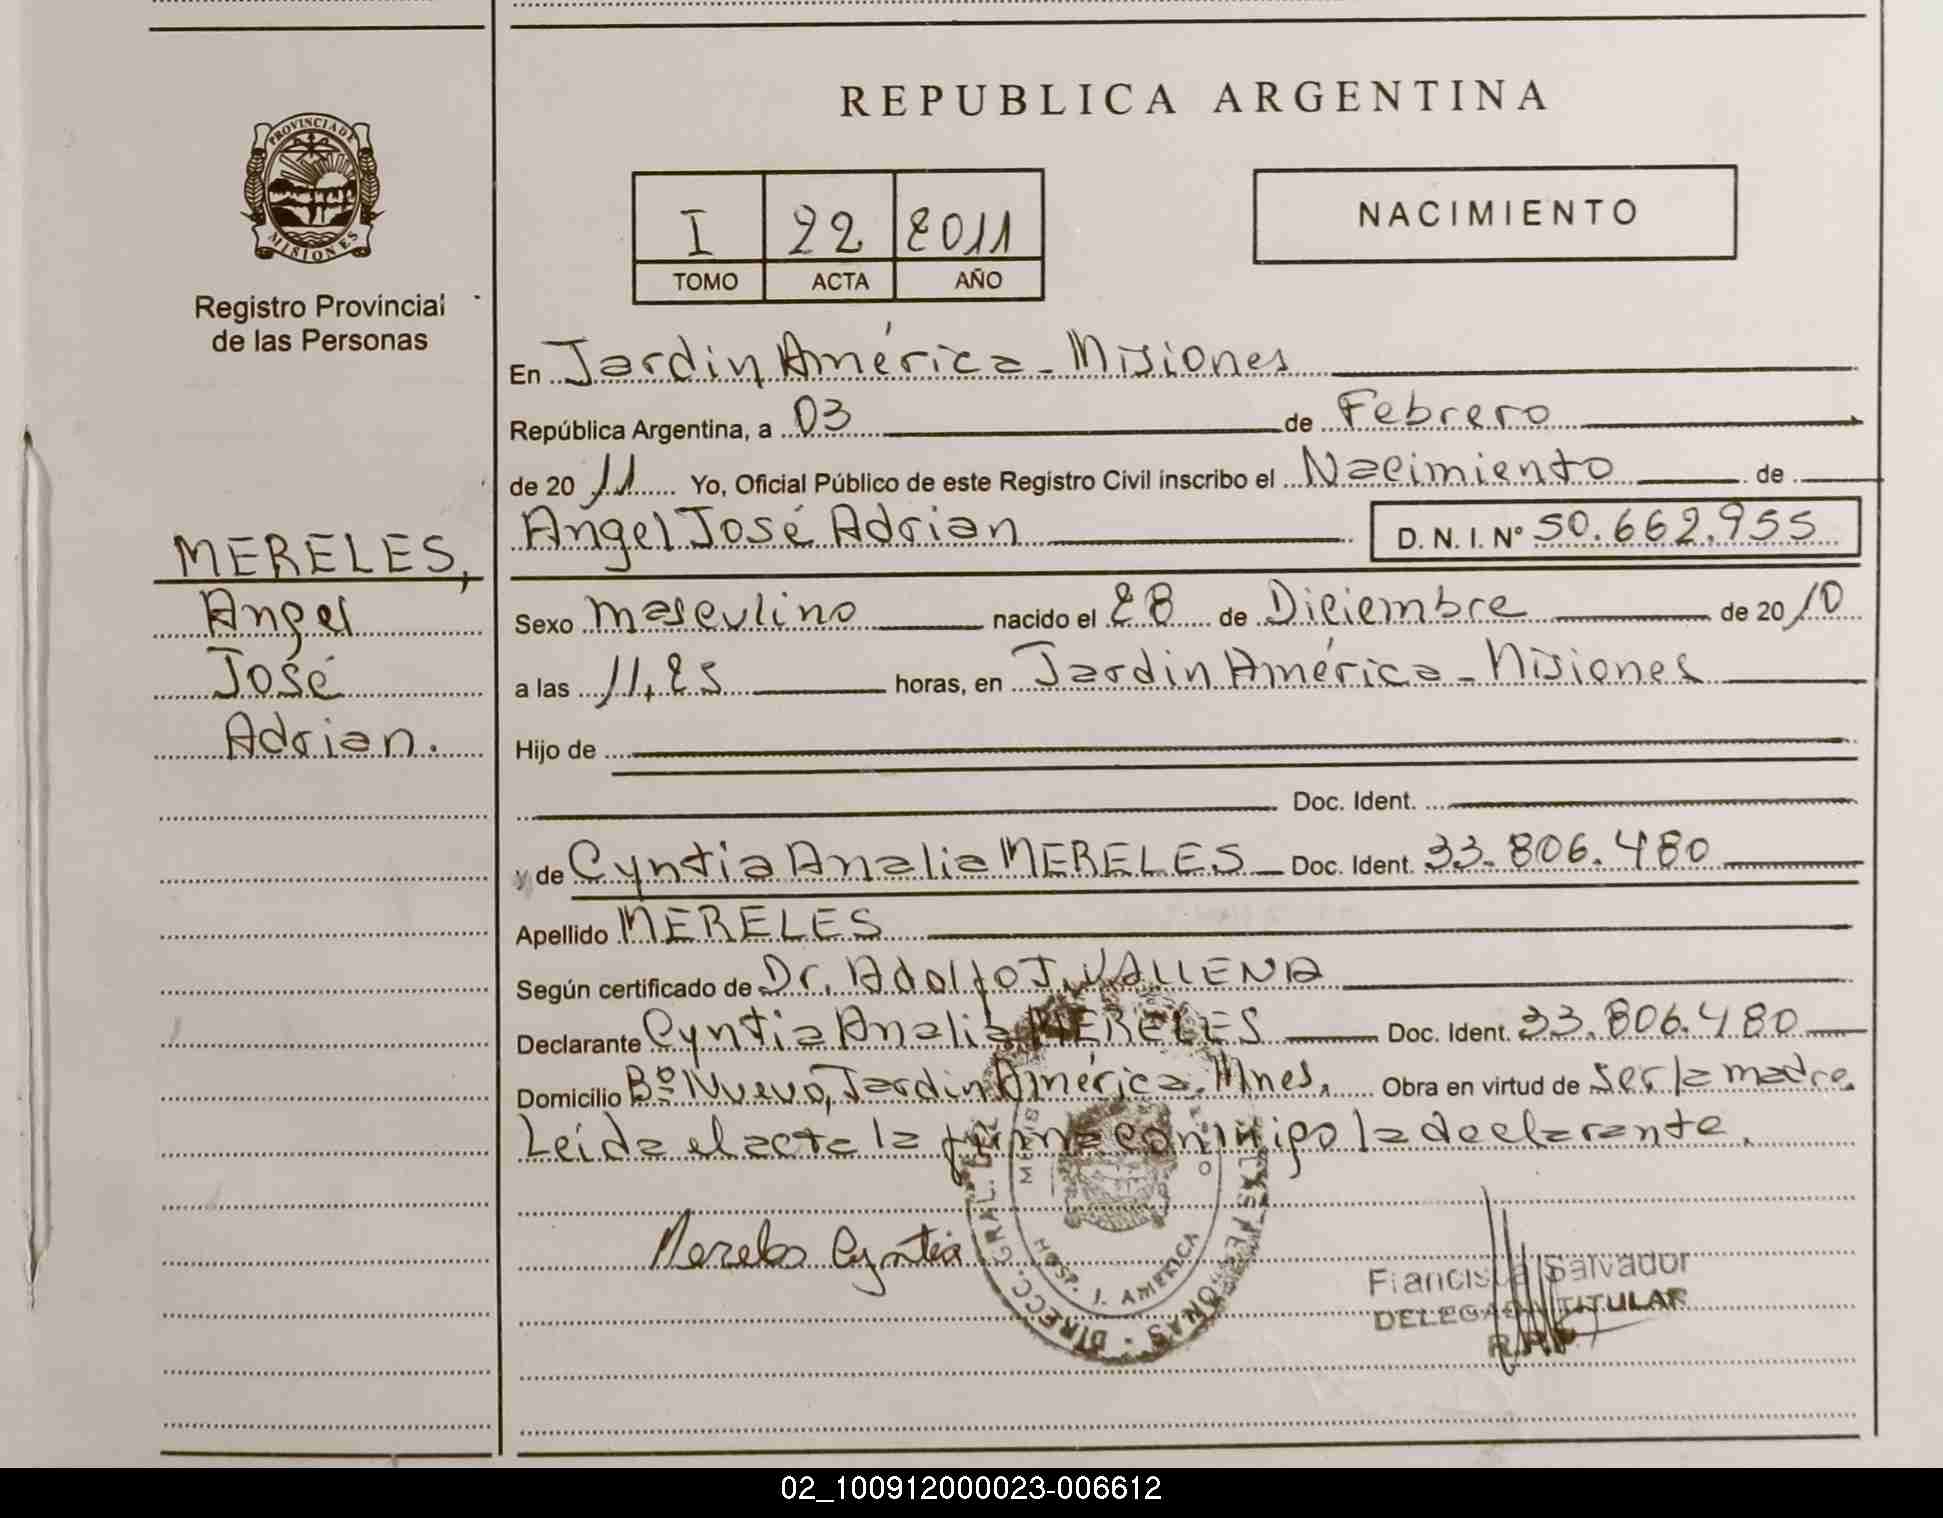 PROVINCIA DE
MISIONES
Registro Provincial
de las Personas
MERELES,
Angel
José
Adrian.
REPUBLICA ARGENTINA
I 22 2011
TOMO ACTA AÑO
NACIMIENTO
En Jardin América - Misiones
República Argentina, a 03 de Febrero
de 20 11 Yo, Oficial Público de este Registro Civil inscribo el Nacimiento de
Angel José Adrian D. N. I. Nº 50.662.955
Sexo masculino nacido el 28 de Diciembre de 20 10
a las 11,25 horas, en Jardin América - Misiones
Hijo de
Doc. Ident.
y de Cyntia Analia MERELES Doc. Ident. 33.806.480
Apellido MERELES
Según certificado de Dr. Adolfo J. VALLENA
Declarante Cyntia Analia MERELES Doc. Ident. 33.806.480
Domicilio Bº Nuevo, Jardin América. Mnes. Obra en virtud de ser la madre.
Leida el acta la firma conmigo la declarante.
Mereles Cyntia
DIRECC. GRAL.
HOSP. J. AMERICA
Salvador
DELEGADA TITULAR
R.P.P.
02_100912000023-006612